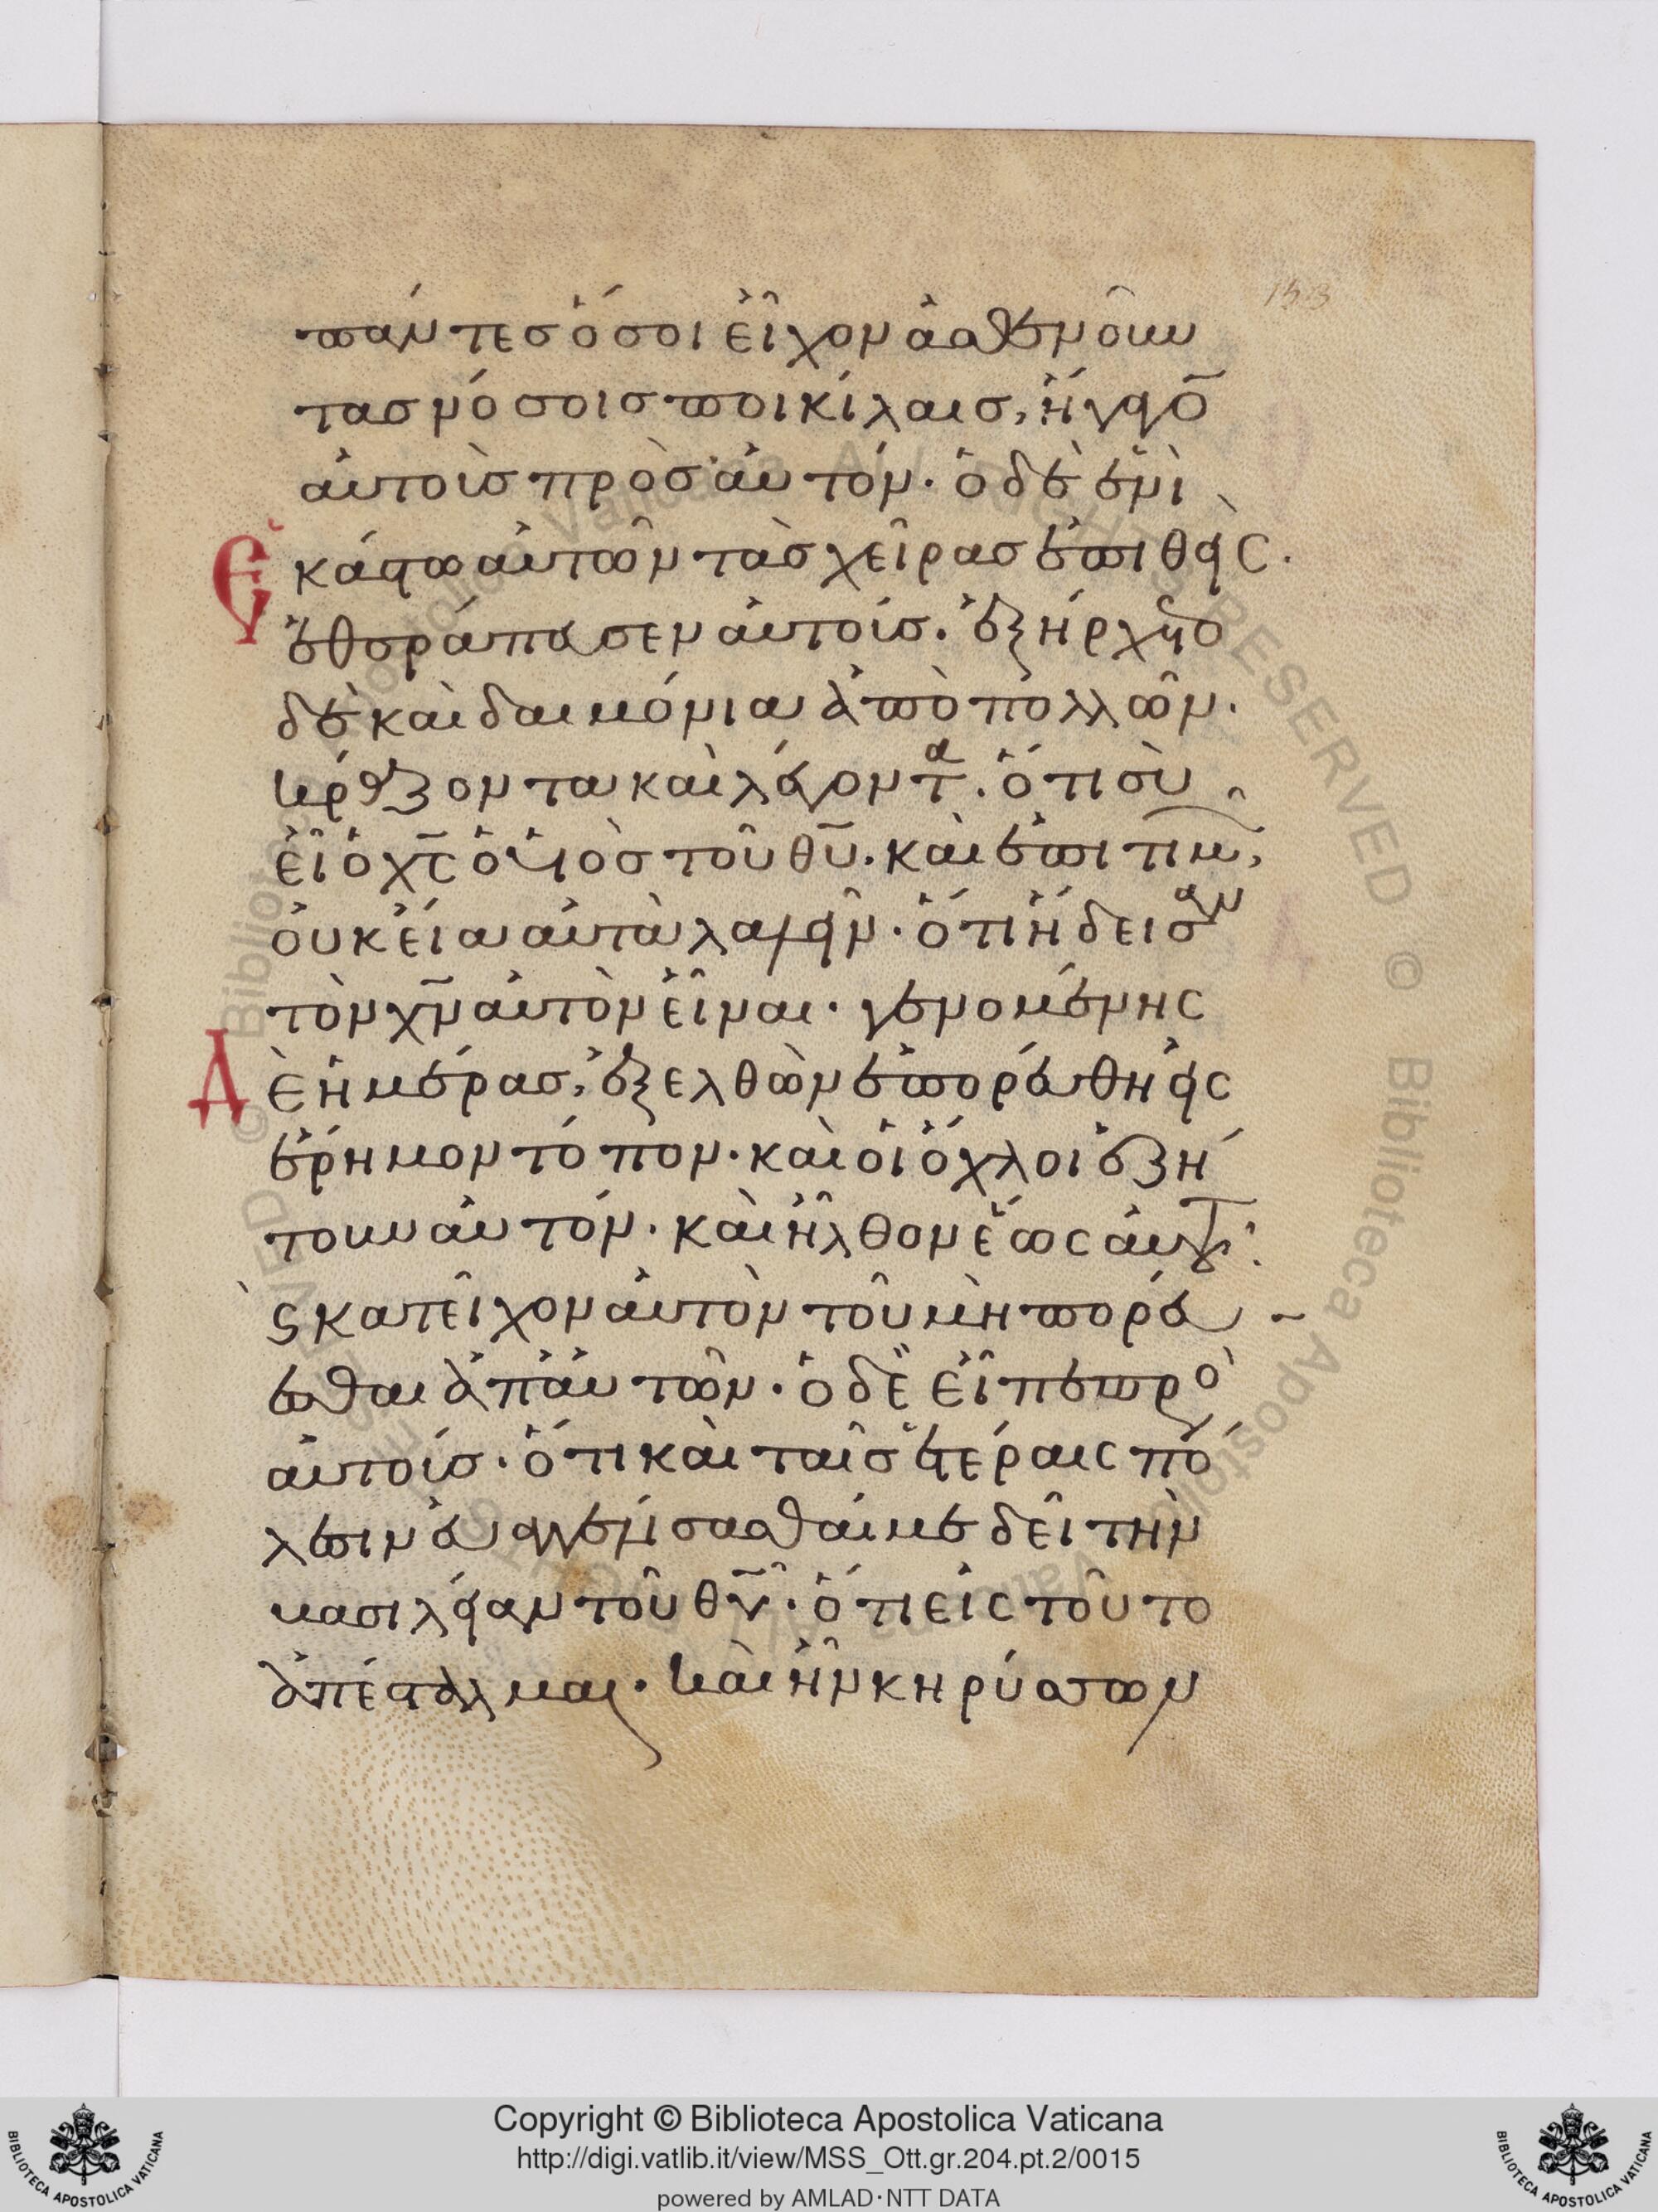 153
πάντες ὅσοι εἶχον ἀσθενοῦν
τας νόσοις ποικίλαις, ἤγαγο̅
αὐτοὺς πρὸς αὐτόν· ὁ δὲ ἑνὶ
ἑκάστω αὐτῶν τὰς χεῖρας ἐπιθεὶς·
ἐθεράπευσεν αὐτούς· ἐξήρχετο
δὲ καὶ δαιμόνια ἀπὸ πολλῶν·
κράζοντα καὶ λέγοντα· ὅτι σὺ
εἶ ὁ χς̅ ὁ υἱὸς τοῦ θυ̅· καὶ ἐπιτιμῶν,
οὐκ εἴα αὐτὰ λαλεῖν· ὅτι ἤδεισαν
τὸν χν̅ αὐτὸν εἶναι· γενομένης
Δὲ ἡμέρας, ἐξελθὼν ἐπορεύθη εἰς
ἔρημον τόπον· καὶ οἱ ὄχλοι ἐζή
τουν αὐτόν· καὶ ἦλθον ἕως αὐτοῦ·
ϛ κατεῖχον αὐτὸν τοῦ μὴ πορεύ-
εσθαι ἀπ' αὐτῶν· ὁ δὲ εἶπε πρὸς
αὐτούς· ὅτι καὶ ταῖς ἑτέραις πό
λεσιν εὐαγγελίσασθαί με δεῖ τὴν
βασιλείαν τοῦ θυ̅· ὅτι εἰς τοῦτο
ἀπέσταλμαι· καὶ ἦν κηρύσσων
Copyright © Biblioteca Apostolica Vaticana
http://digi.vatlib.it/view/MSS_Ott.gr.204.pt.2/0015
powered by AMLAD·NTT DATA
BIBLIOTECA APOSTOLICA VATICANA
BIBLIOTECA APOSTOLICA VATICANA